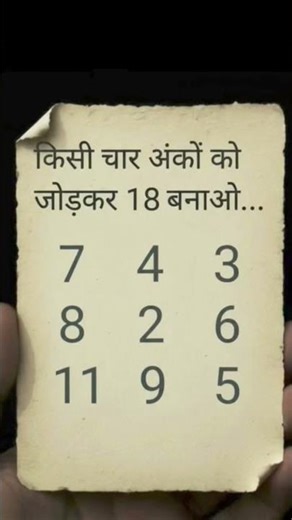 किसी चार अंकों को
जोड़कर 18 बनाओ...
7 4 3
8 2 6
11 9 5